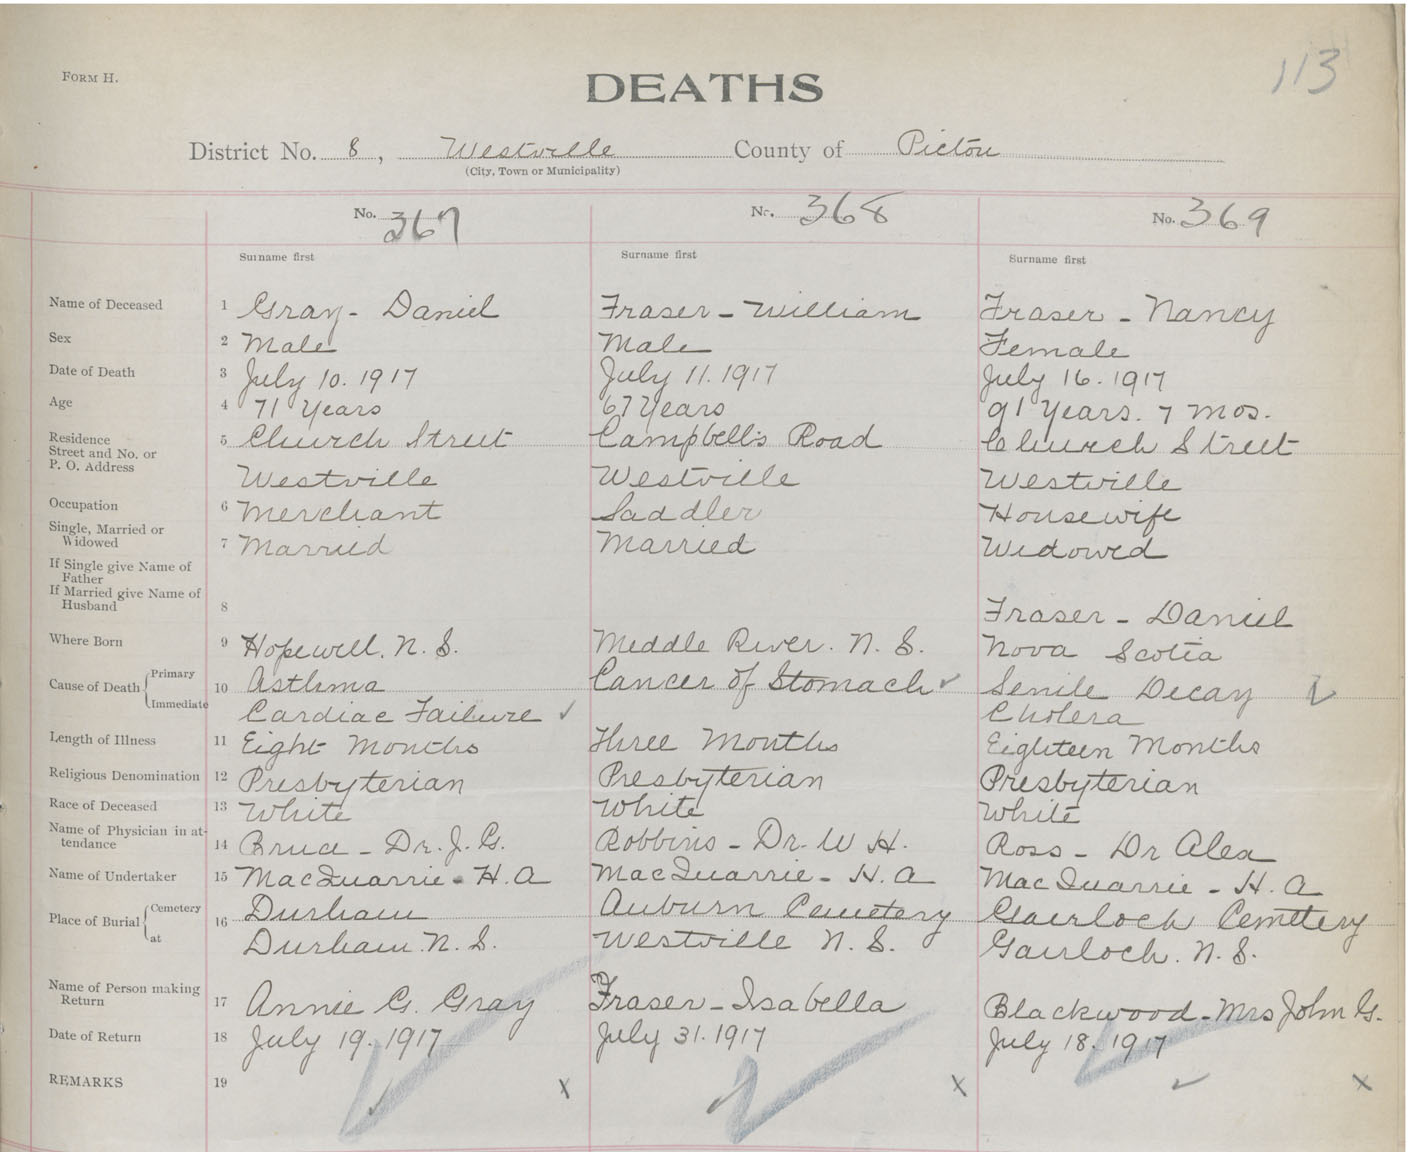 113
FORM H.
DEATHS
District No. 8, Westville County of Pictou
(City, Town or Municipality)
No. 367 No. 368 No. 369
Surname first Surname first Surname first
Name of Deceased 1 Gray - Daniel Fraser - William Fraser - Nancy
Sex 2 Male Male Female
Date of Death 3 July 10. 1917 July 11. 1917 July 16. 1917
Age 4 71 Years 67 Years 91 Years. 7 mos.
Residence 5 Church Street Campbell's Road Church Street
Street and No. or
P. O. Address Westville Westville Westville
Occupation 6 Merchant Saddler Housewife
Single, Married or
Widowed 7 Married Married Widowed
If Single give Name of
Father
If Married give Name of
Husband 8 Fraser - Daniel
Where Born 9 Hopewell. N. S. Middle River. N. S. Nova Scotia
Cause of Death Primary 10 Asthma Cancer of Stomach Senile Decay
Immediate Cardiac Failure Cholera
Length of Illness 11 Eight Months Three Months Eighteen Months
Religious Denomination 12 Presbyterian Presbyterian Presbyterian
Race of Deceased 13 White White White
Name of Physician in at-
tendance 14 Bruce - Dr. J. G. Robbins - Dr. W H. Ross - Dr Alex
Name of Undertaker 15 MacQuarrie - H. A MacQuarrie - H. A MacQuarrie - H. A
Place of Burial Cemetery 16 Durham Auburn Cemetery Gairloch Cemetery
at Durham N. S. Westville N. S. Gairloch. N. S.
Name of Person making
Return 17 Annie G. Gray Fraser - Isabella Blackwood - Mrs John G.
Date of Return 18 July 19. 1917 July 31. 1917 July 18. 1917
REMARKS 19 x x x